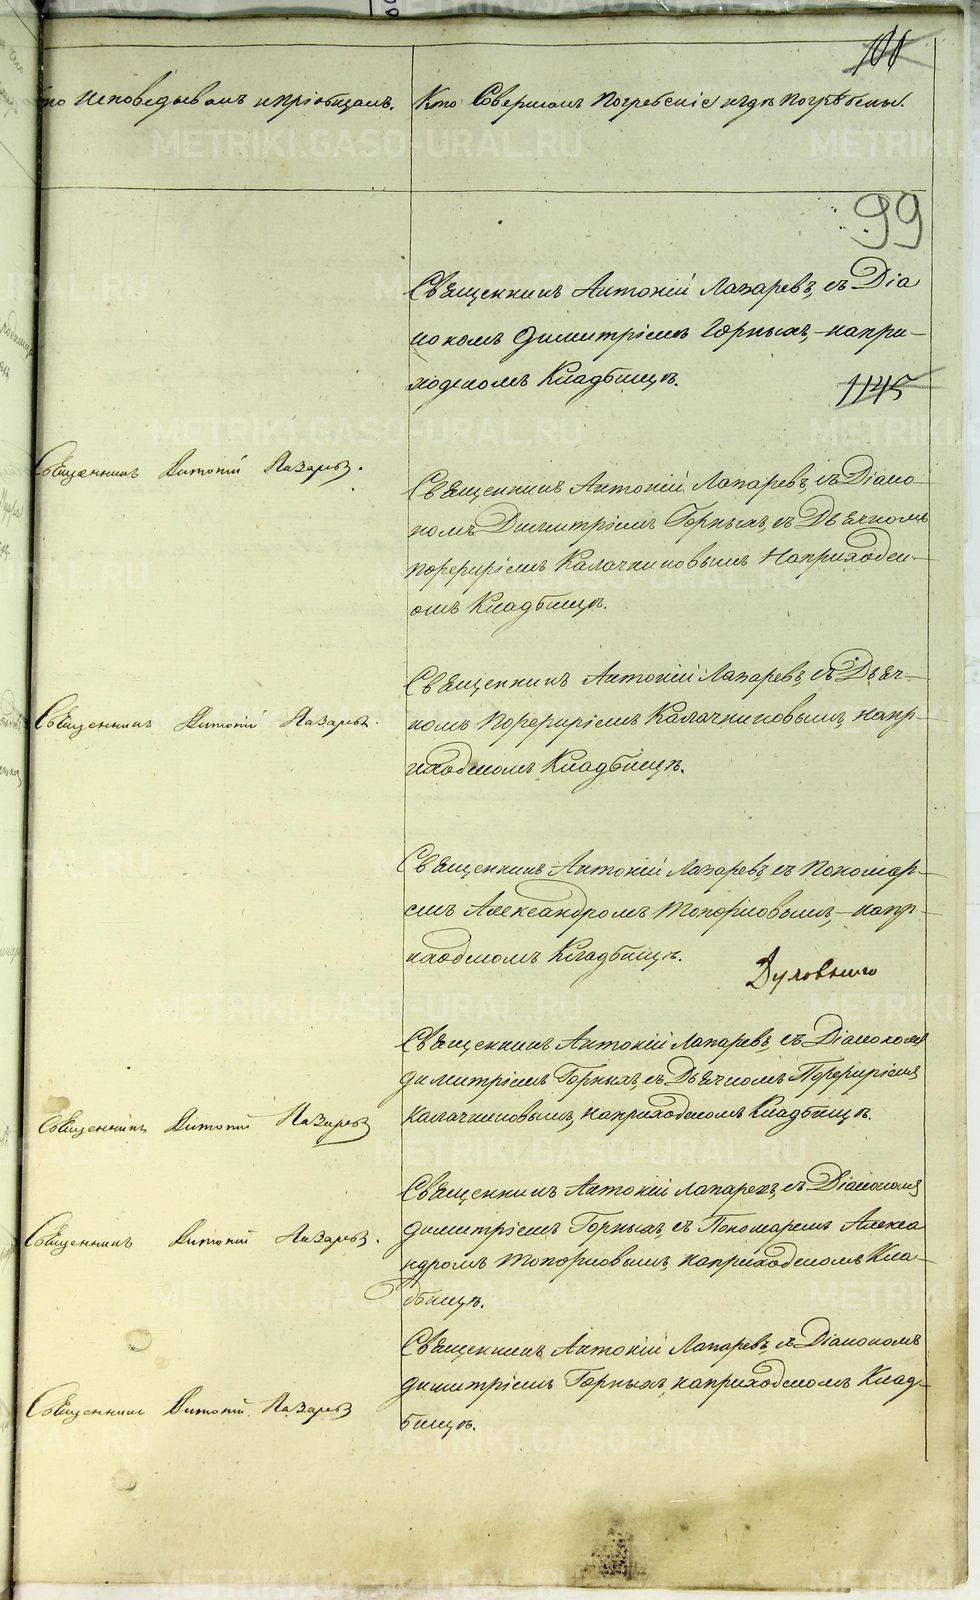 100
Кто Исповедывалъ и пріобщалъ. Кто Совершалъ Погребеніе и гдѣ Погребены.
99
Священникъ Антоній Лазаревъ, съ Діа
кономъ Димитріемъ Горныхъ, на при-
ходскомъ Кладбищѣ.
1145
Священникъ Антоній Лазаревъ.
Священникъ Антоній Лазаревъ, съ Діако
номъ Димитріемъ Горныхъ, съ Дьячкомъ
Порфиріемъ Калачниковымъ На приходск-
омъ Кладбищѣ.
Священникъ Антоній Лазаревъ.
Священникъ Антоній Лазаревъ, съ Дьяч-
комъ Порфиріемъ Калачниковымъ, на пр-
иходскомъ Кладбищѣ.
Священникъ Антоній Лазаревъ, съ Пономар-
емъ Александромъ Топорковымъ, на пр-
иходскомъ Кладбищѣ.
Священникъ Антоній Лазаревъ
Священникъ Антоній Лазаревъ, съ Діакономъ
Димитріемъ Горныхъ, съ Дьячкомъ Порфиріемъ
Калачниковымъ, на приходскомъ Кладбищѣ.
Священникъ Антоній Лазаревъ.
Священникъ Антоній Лазаревъ, съ Діакономъ
Димитріемъ Горныхъ, съ Пономаремъ Алекса
ндромъ Топорковымъ, на приходскомъ Кла-
дбищѣ.
Священникъ Антоній Лазаревъ
Священникъ Антоній Лазаревъ, съ Діакономъ
Димитріемъ Горныхъ, на приходскомъ Клад-
бищѣ.
METRIKI.GASO-URAL.RU